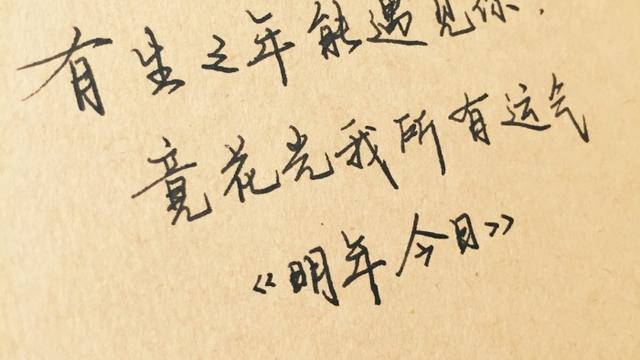 有生之年能遇见你，
竟花光我所有运气
《明年今日》